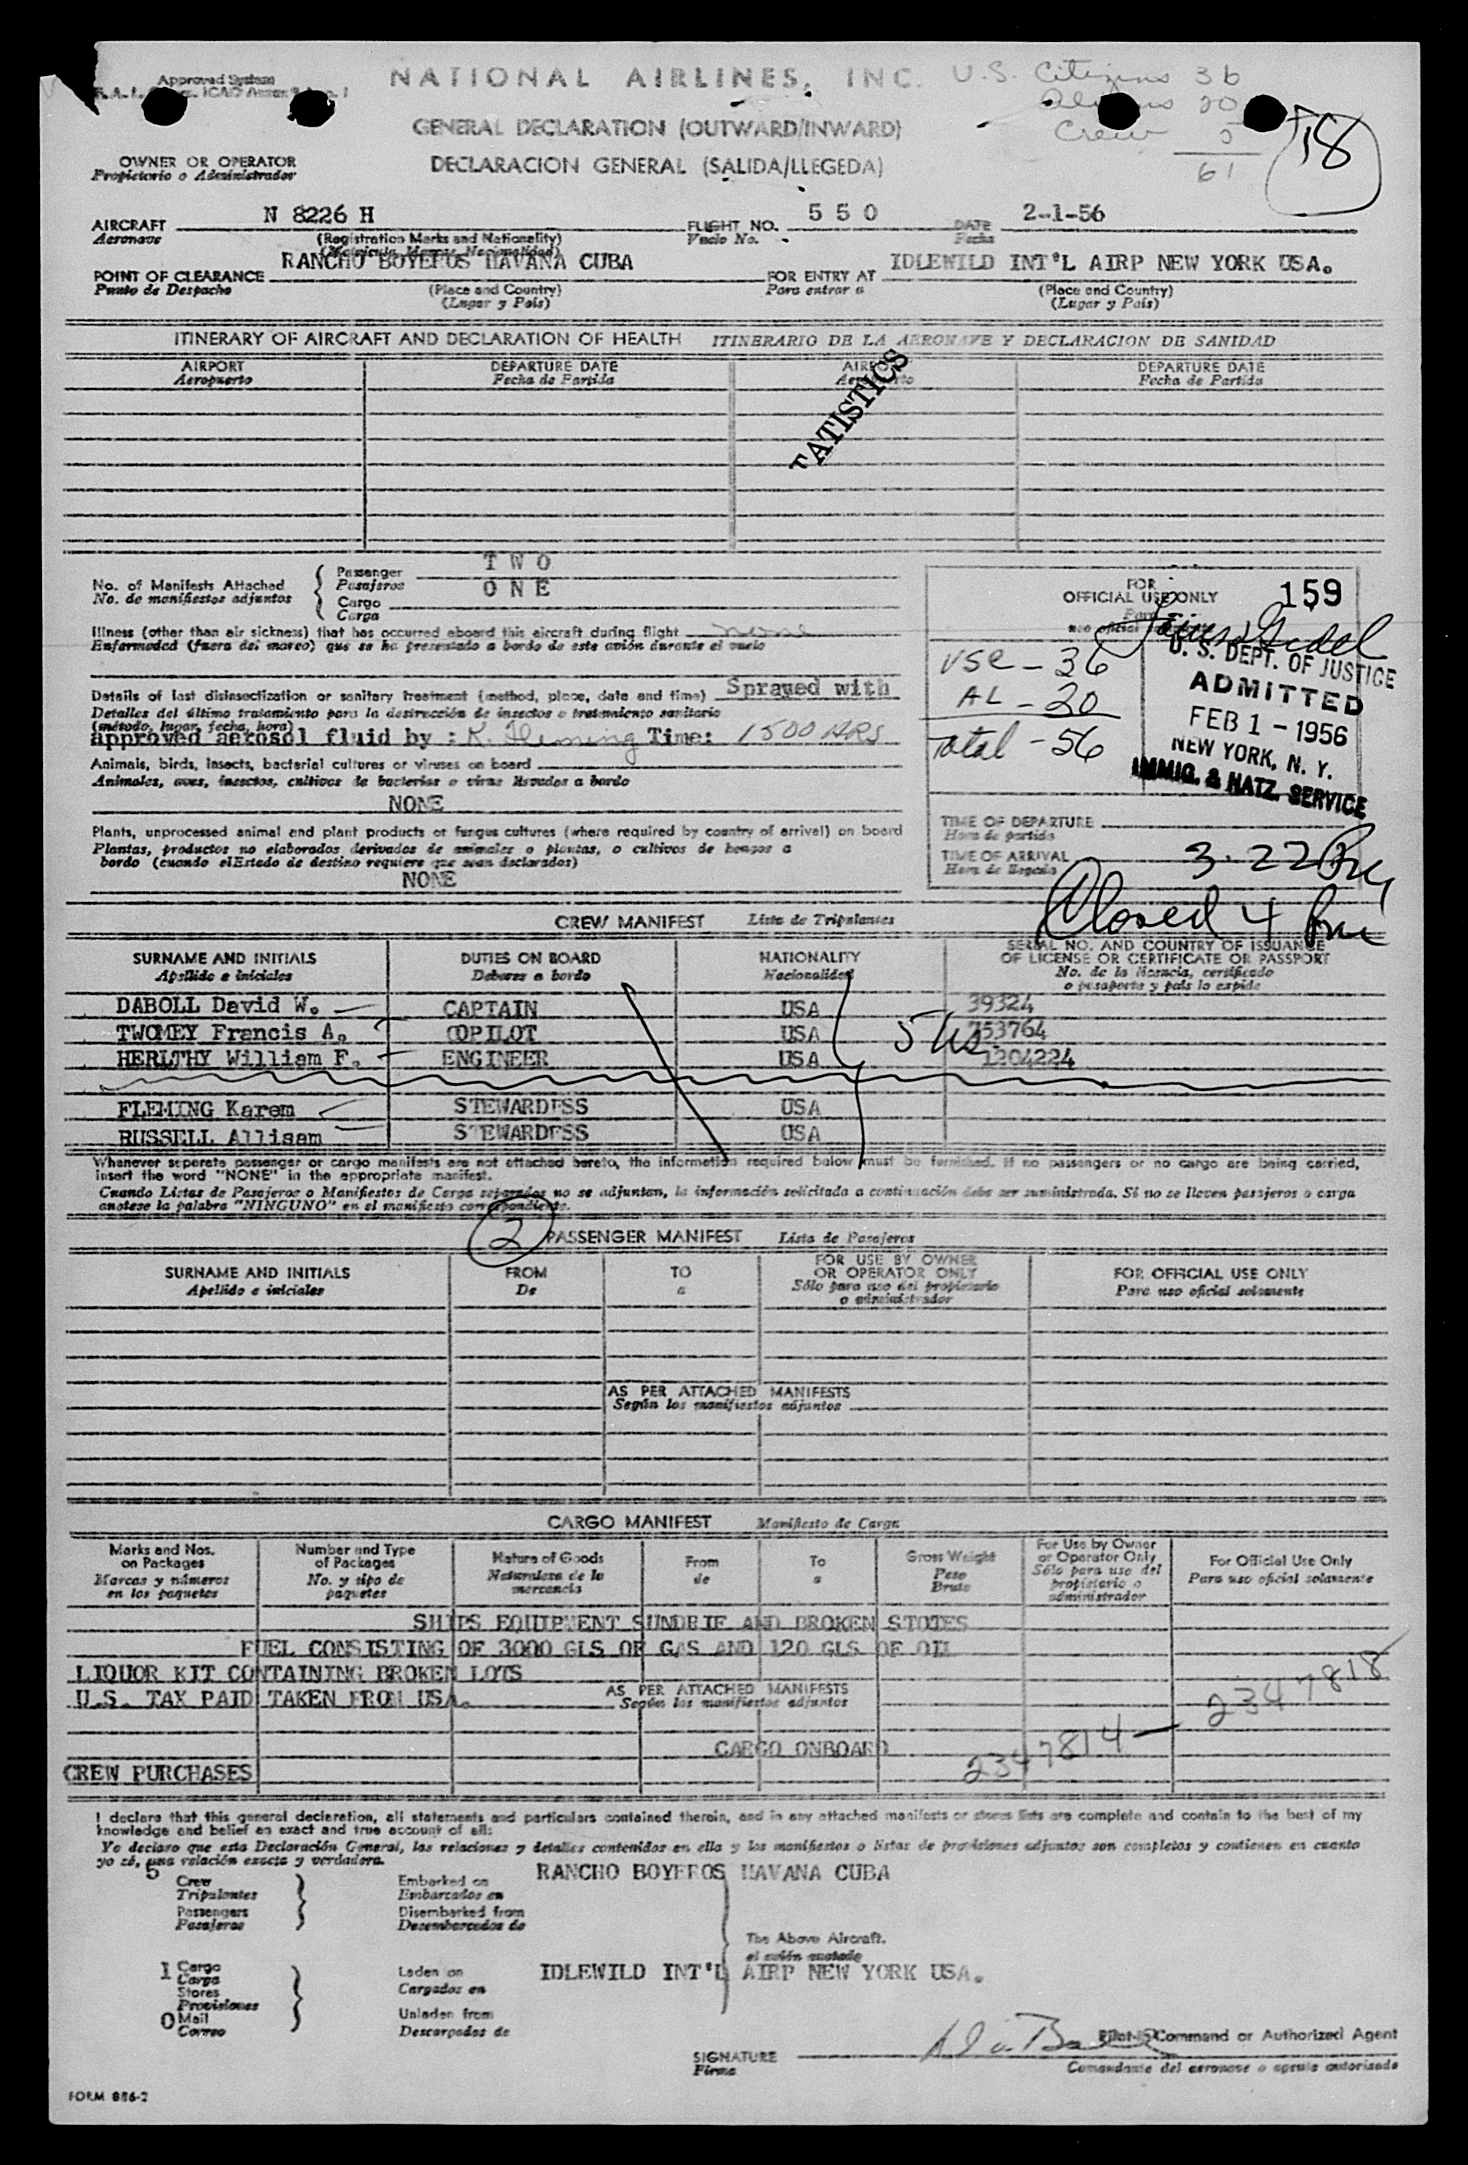 Approved System
NATIONAL AIRLINES, INC.
U.S. Citizens 36
Aliens 20
Crew 5
61
18
GENERAL DECLARATION (OUTWARD/INWARD)
DECLARACION GENERAL (SALIDA/LLEGEDA)
OWNER OR OPERATOR
Propietario o Administrador
AIRCRAFT N 8226 H FLIGHT NO. 550 DATE 2-1-56
Aeronave (Registration Marks and Nationality) Vuelo No. Fecha
(Matricula Marcas Nacionalidad)
POINT OF CLEARANCE RANCHO BOYEROS HAVANA CUBA FOR ENTRY AT IDLEWILD INT'L AIRP NEW YORK USA.
Punto de Despacho (Place and Country) Para entrar a (Place and Country)
(Lugar y País) (Lugar y País)
ITINERARY OF AIRCRAFT AND DECLARATION OF HEALTH ITINERARIO DE LA AERONAVE Y DECLARACION DE SANIDAD
AIRPORT DEPARTURE DATE AIRPORT DEPARTURE DATE
Aeropuerto Fecha de Partida Aeropuerto Fecha de Partida
TATISTICS
No. of Manifests Attached Passenger TWO
No. de manifiestos adjuntos Pasajeros
Cargo ONE
Carga
FOR
OFFICIAL USE ONLY 159
Illness (other than air sickness) that has occurred aboard this aircraft during flight none
Enfermedad (fuera del mareo) que se ha presentado a bordo de este avión durante el vuelo
USC - 36
AL - 20
Total - 56
U. S. DEPT. OF JUSTICE
ADMITTED
FEB 1 - 1956
NEW YORK, N. Y.
IMMIG. & NATZ. SERVICE
Details of last disinsectization or sanitary treatment (method, place, date and time) Sprayed with
Detalles del último tratamiento para la destrucción de insectos o tratamiento sanitario
(método, lugar, fecha, hora)
approved aerosol fluid by : K. Fleming Time: 1500 HRS
Animals, birds, insects, bacterial cultures or viruses on board
Animales, aves, insectos, cultivos de bacterias o virus llevados a bordo
NONE
Plants, unprocessed animal and plant products or fungus cultures (where required by country of arrival) on board
Plantas, productos no elaborados derivados de animales o plantas, o cultivos de hongos a
bordo (cuando el Estado de destino requiere que sean declarados)
NONE
TIME OF DEPARTURE
Hora de partida
TIME OF ARRIVAL 3.22 Pm
Hora de llegada
Closed 4 pm
CREW MANIFEST Lista de Tripulantes
SURNAME AND INITIALS DUTIES ON BOARD NATIONALITY SERIAL NO. AND COUNTRY OF ISSUANCE
OF LICENSE OR CERTIFICATE OR PASSPORT
Apellido e iniciales Deberes a bordo Nacionalidad No. de la licencia, certificado
o pasaporte y país lo expide
DABOLL David W. CAPTAIN USA 39324
TWOMEY Francis A. COPILOT USA 753764
HERLTHY William F. ENGINEER USA 1204224
5 US
FLEMING Karem STEWARDESS USA
RUSSELL Allisam STEWARDESS USA
Whenever separate passenger or cargo manifests are not attached hereto, the information required below must be furnished. If no passengers or no cargo are being carried,
insert the word "NONE" in the appropriate manifest.
Cuando Listas de Pasajeros o Manifiestos de Carga separados no se adjuntan, la información solicitada a continuación debe ser suministrada. Si no se lleven pasajeros o carga
anotese la palabra "NINGUNO" en el manifiesto correspondiente.
2
PASSENGER MANIFEST Lista de Pasajeros
SURNAME AND INITIALS FROM TO FOR USE BY OWNER OR OPERATOR ONLY FOR OFFICIAL USE ONLY
Apellido e iniciales De a Sólo para uso del propietario o administrador Para uso oficial solamente
AS PER ATTACHED MANIFESTS
Según los manifiestos adjuntos
CARGO MANIFEST Manifiesto de Carga
Marks and Nos. on Packages Number and Type of Packages Nature of Goods From To Gross Weight For Use by Owner or Operator Only For Official Use Only
Marcas y números en los paquetes No. y tipo de paquetes Naturaleza de la mercancía de a Peso Bruto Sólo para uso del propietario o administrador Para uso oficial solamente
SHIPS EQUIPMENT SUNDRIE AND BROKEN STOTES
FUEL CONSISTING OF 3000 GLS OF GAS AND 120 GLS OF OIL
LIQUOR KIT CONTAINING BROKEN LOTS
U.S. TAX PAID TAKEN FROM USA. AS PER ATTACHED MANIFESTS
Según los manifiestos adjuntos
2347814 — 2347818
CARGO ONBOARD
CREW PURCHASES
I declare that this general declaration, all statements and particulars contained therein, and in any attached manifests or stores lists are complete and contain to the best of my
knowledge and belief an exact and true account of all:
Yo declaro que esta Declaración General, las relaciones y detalles contenidos en ella y los manifiestos o listas de provisiones adjuntos son completos y contienen en cuanto
yo sé, una relación exacta y verdadera.
5 Crew Embarked on RANCHO BOYEROS HAVANA CUBA
Tripulantes Embarcados en
Passengers Disembarked from
Pasajeros Desembarcados de
The Above Aircraft.
el avión anotado
1 Cargo Laden on IDLEWILD INT'L AIRP NEW YORK USA.
Carga Cargados en
Stores
Provisiones
0 Mail Unladen from
Correo Descargados de
SIGNATURE Pilot-in-Command or Authorized Agent
Firma Comandante del aeronave o agente autorizado
FORM 886-2